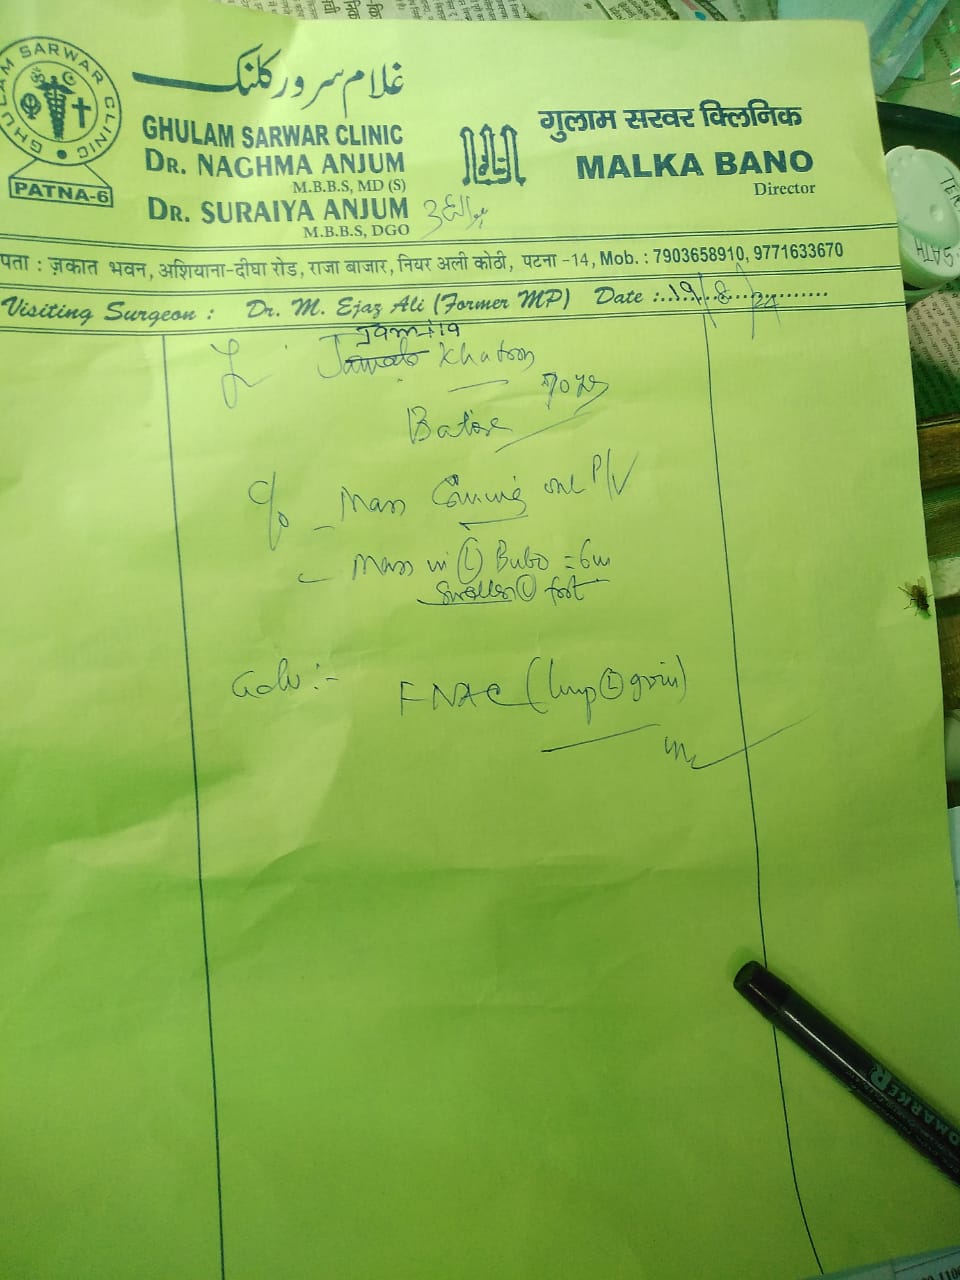 GHULAM SARWAR CLINIC
PATNA-6
غلام سرور کلنک
GHULAM SARWAR CLINIC
DR. NAGHMA ANJUM
M.B.B.S, MD (S)
DR. SURAIYA ANJUM
M.B.B.S, DGO
गुलाम सरवर क्लिनिक
MALKA BANO
Director
पता : ज़कात भवन, अशियाना-दीघा रोड, राजा बाजार, नियर अली कोठी, पटना -14, Mob. : 7903658910, 9771633670
Visiting Surgeon : Dr. M. Ejaz Ali (Former MP) Date : 19/8/24
Jamila
Khatoon
70 yrs
c/o - Mass Coming out P/V
- Mass in (L) Bubo = 6m
(L) foot
Adv :-
FNAC (lump (L) groin)
MARKER